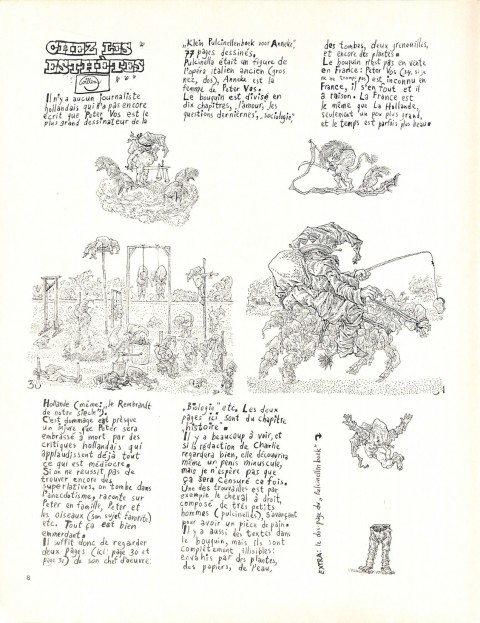 CHEZ LES
ESTHÈTES
Il n'y a aucun journaliste
hollandais qui n'a pas encore
écrit que Peter Vos est le
plus grand dessinateur de la
„Klein Pulcinellenboek voor Anneke",
77 pages dessinés.
Pulcinella était un figure de
l'opéra italien ancien (gros
nez, dos), Anneke est la
femme de Peter Vos.
Le bouquin est divisé en
dix chapitres, „l'amour, les
questions dernières", „sociologie"
des tombes, deux grenouilles,
et encore des plantes.
Le bouquin n'est pas en vente
en France: Peter Vos (34, si je
ne me trompe pas) est inconnu en
France, il s'en fout et il
a raison. La France est
le même que La Hollande,
seulement un peu plus grand,
et le temps est parfois plus beau.
30
Hollande (même: „le Rembrandt
de notre siècle").
C'est dommage et presque
un injure que Peter sera
embrassé à mort par des
critiques hollandais qui
applaudissent déjà tout
ce qui est médiocre.
Si on ne reussit pas de
trouver encore des
superlatives, on tombe dans
l'anecdotisme, raconte sur
Peter en famille, Peter et
les oiseaux (son sujet favorite)
etc. Tout ça est bien
emmerdant.
Il suffit donc de regarder
deux pages (ici: page 30 et
page 31) de son chef d'œuvre:
„Biologie" etc. Les deux
pages ici sont du chapitre
„histoire".
Il y a beaucoup à voir, et
si la rédaction de Charlie
regardera bien, elle découvrira
même un penis minuscule,
mais je n'espère pas que
ça sera censuré ce fois.
Une des trouvailles est par
exemple le cheval à droit,
composé de très petits
hommes (pulcinelles), s'avançant
pour avoir un pièce de pain.
Il y a aussi des textes dans
le bouquin, mais ils sont
complètement illisibles:
envahis par des plantes,
des papiers, de l'eau,
EXTRA: le dos pag. du „Pulcinellenboek"
8